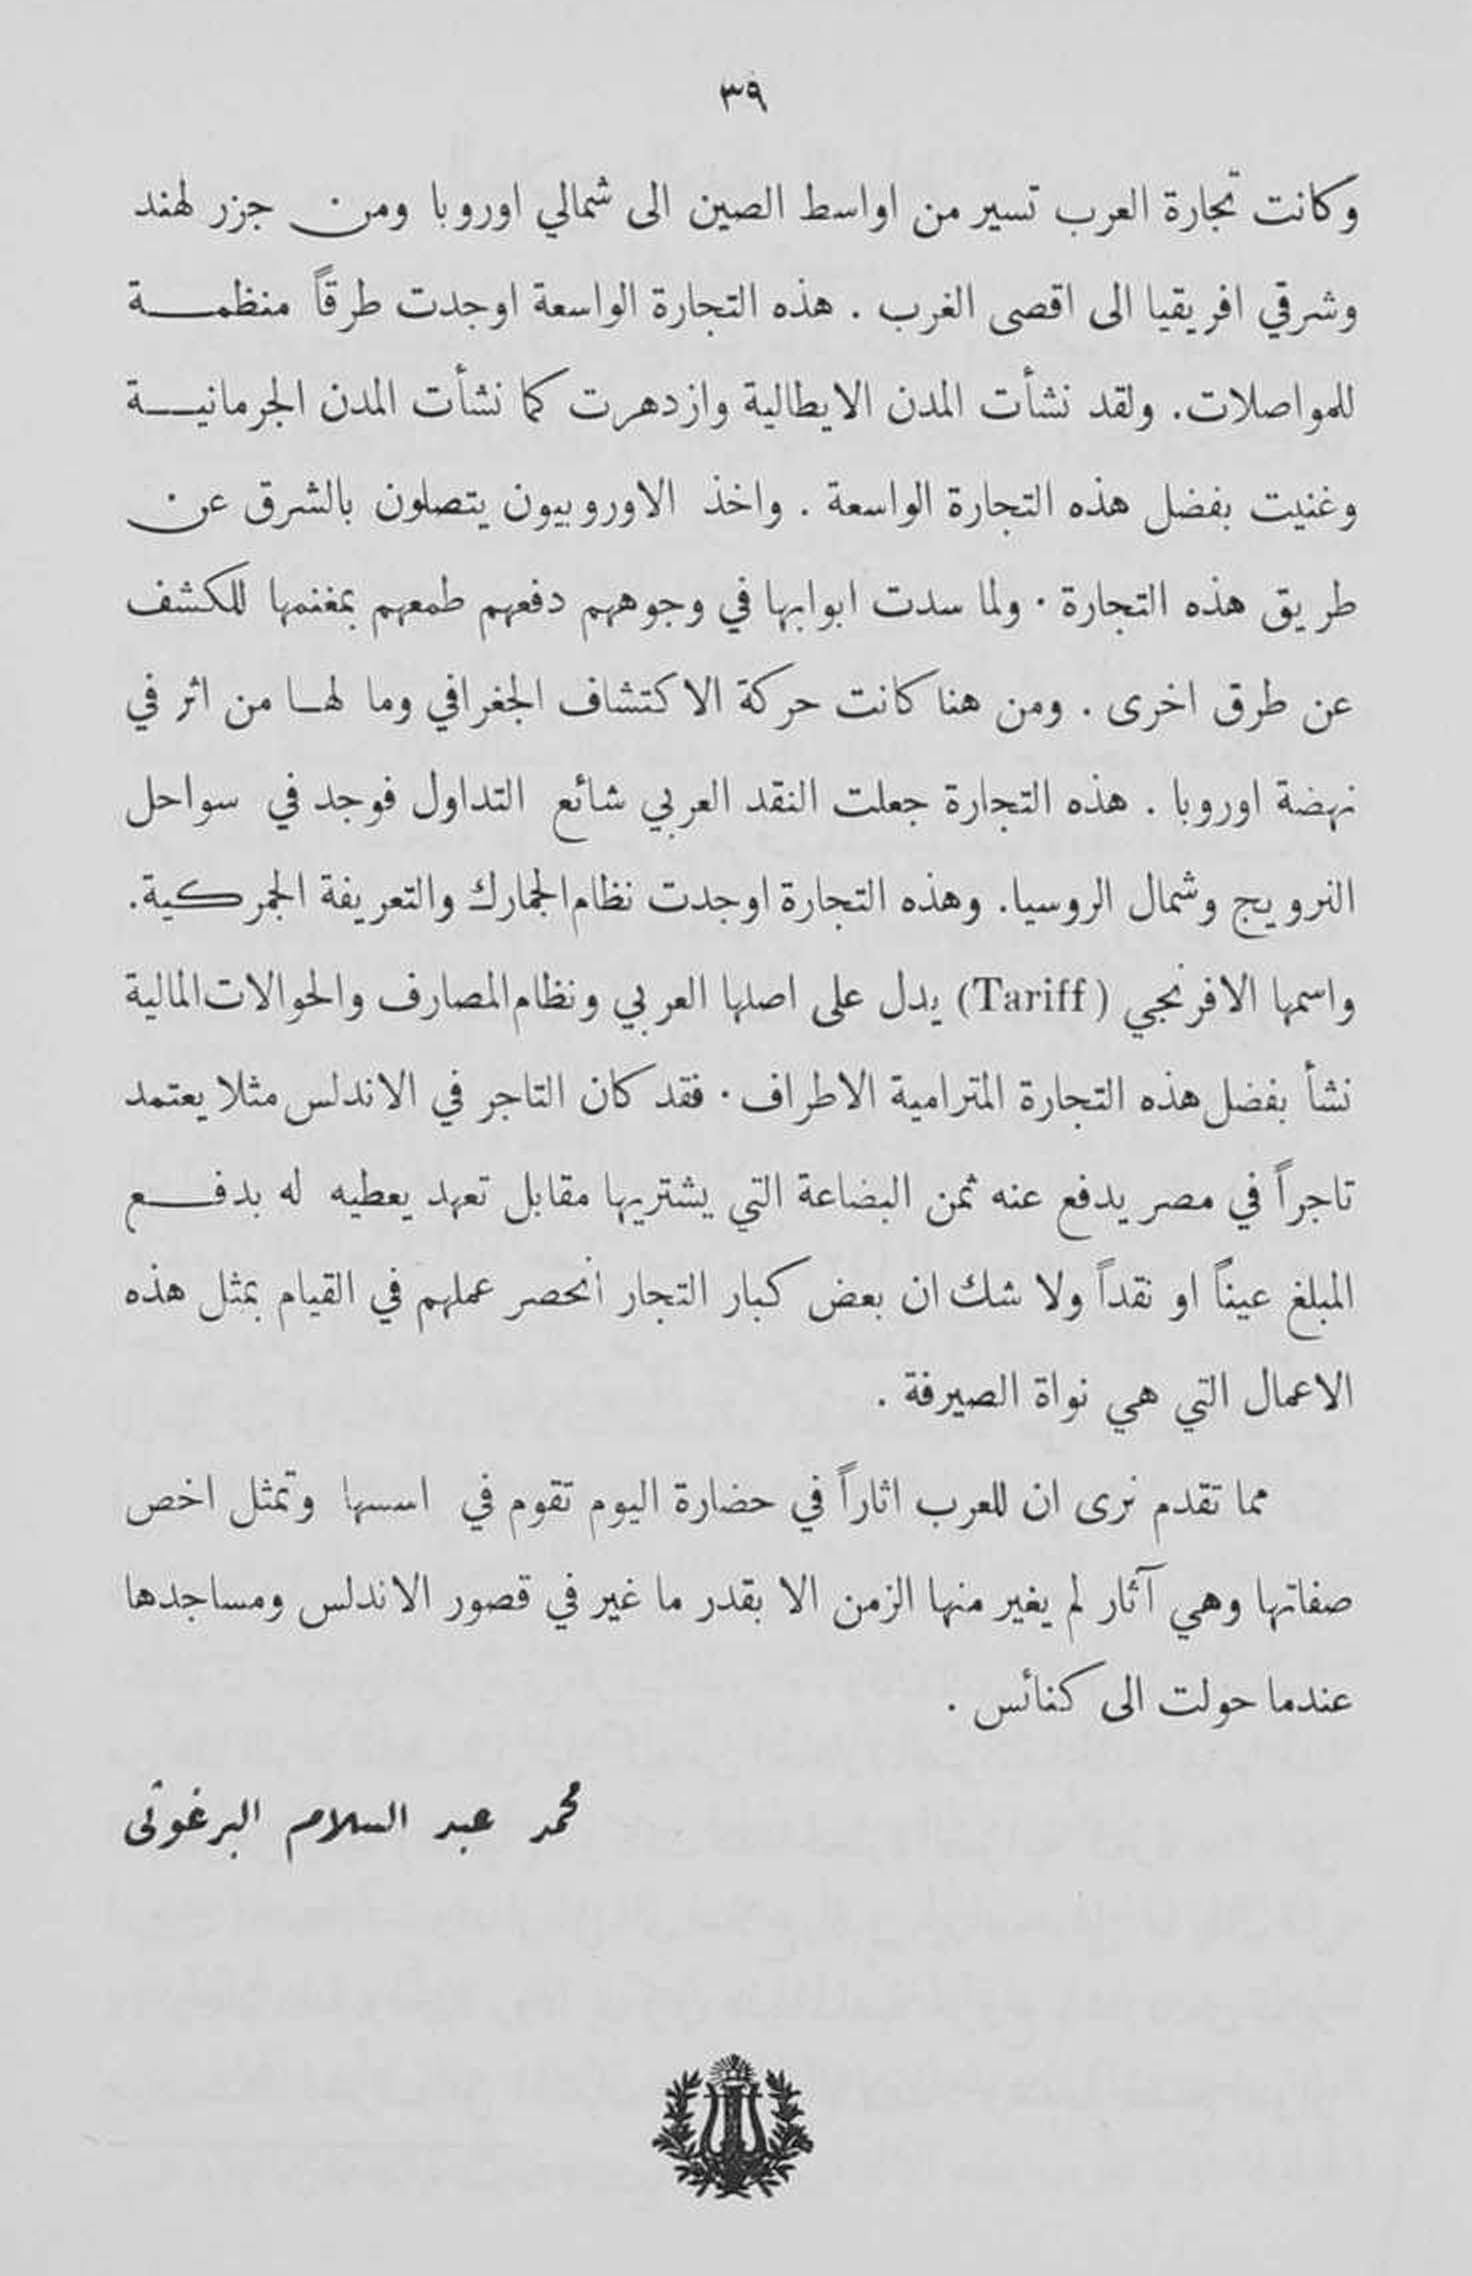 ٣٩
وكانت تجارة العرب تسير من اواسط الصين الى شمالي اوروبا ومن جزر لهند
وشرقي افريقيا الى اقصى الغرب . هذه التجارة الواسعة اوجدت طرقاً منظمة
للمواصلات. ولقد نشأت المدن الايطالية وازدهرت كما نشأت المدن الجرمانية
وغنيت بفضل هذه التجارة الواسعة . واخذ الاوروبيون يتصلون بالشرق عن
طريق هذه التجارة . ولما سدت ابوابها في وجوههم دفعهم طمعهم بمغنمها للكشف
عن طرق اخرى . ومن هنا كانت حركة الاكتشاف الجغرافي وما لها من اثر في
نهضة اوروبا . هذه التجارة جعلت النقد العربي شائع التداول فوجد في سواحل
النرويج وشمال الروسيا. وهذه التجارة اوجدت نظام الجمارك والتعريفة الجمركية.
واسمها الافرنجي (Tariff) يدل على اصلها العربي ونظام المصارف والحوالات المالية
نشأ بفضل هذه التجارة المترامية الاطراف . فقد كان التاجر في الاندلس مثلا يعتمد
تاجراً في مصر يدفع عنه ثمن البضاعة التي يشتريها مقابل تعهد يعطيه له بدفع
المبلغ عيناً او نقداً ولا شك ان بعض كبار التجار انحصر عملهم في القيام بمثل هذه
الاعمال التي هي نواة الصيرفة .
مما تقدم نرى ان للعرب اثاراً في حضارة اليوم تقوم في اسسها وتمثل اخص
صفاتها وهي آثار لم يغير منها الزمن الا بقدر ما غير في قصور الاندلس ومساجدها
عندما حولت الى كنائس .
محمد عبد السلام البرغوثى